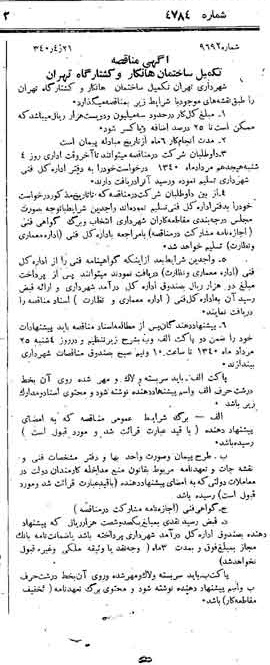 شماره ۴۷۸۴
۳
شماره ۹۶۹۲
۳۴۰/۴/۲۱
آگهی مناقصه
تکمیل ساختمان هانکار و کشتارگاه تهران
شهرداری تهران تکمیل ساختمان هانکار و کشتارگاه تهران
را طبق نقشه‌های موجود با شرایط زیر بمناقصه میگذارد:
۱ـ مبلغ کل کار در حدود سه میلیون و دویست هزار ریال میباشد که
ممکن است تا ۲۵ درصد اضافه و یا کسر شود
۲ـ مدت انجام کار ۶ ماه از تاریخ مبادله پیمان است
۳ـ داوطلبان شرکت در مناقصه میتوانند تا آخر وقت اداری روز ۴
شنبه هیجدهم مرداد ماه ۱۳۴۰ درخواست خود را به دفتر اداره کل فنی
شهرداری تسلیم نموده و رسید آنرا دریافت دارند.
۴ـ از بین داوطلبان شرکت در مناقصه که تا تاریخ مذکور درخواست
خود را بدفتر اداره کل فنی تسلیم نموده‌اند واجدین شرایط با توجه بصورت
مجلس درجه‌بندی مقاطعه‌کاران شهرداری انتخاب و برگ گواهی فنی
(اجازه‌نامه مشارکت در مناقصه) با مراجعه باداره کل فنی (اداره معماری
و نظارت) تسلیم خواهد شد.
۵ـ واجدین شرایط بعد از اینکه گواهینامه فنی را از اداره کل
فنی (اداره معماری و نظارت) دریافت نمودند میتوانند پس از پرداخت
مبلغ دو هزار ریال بصندوق اداره کل درآمد شهرداری و ارائه قبض
رسید آن به اداره کل فنی (اداره معماری و نظارت) اسناد مناقصه را
دریافت نمایند.
۶ـ پیشنهاد دهندگان پس از مطالعه اسناد مناقصه باید پیشنهادات
خود را ضمن دو پاکت الف و ب بشرح زیر تنظیم و در روز ۴ شنبه ۲۵
مرداد ماه ۱۳۴۰ تا ساعت ۱۰ و نیم صبح بصندوق مناقصات شهرداری
بیندازند.
پاکت الف ـ باید سربسته و لاک و مهر شده روی آن بخط
درشت حرف الف و اسم پیشنهاد دهنده نوشته شود و محتوی اسناد و مدارک
زیر باشد
الف ـ برگ شرایط عمومی مناقصه که به امضای
پیشنهاد دهنده (با قید عبارت قرائت شد و مورد قبول است)
رسیده باشد
ب ـ طرح پیمان و صورت واحد بها و دفتر مشخصات فنی و
نقشه‌جات و تعهدنامه مربوط بقانون منع مداخله کارمندان دولت در
معاملات دولتی که به امضای پیشنهاد دهنده (با قید عبارت قرائت شد و مورد
قبول است) رسیده باشد
ج ـ گواهی فنی (اجازه‌نامه مشارکت در مناقصه)
د ـ قبض رسید نقدی بمبلغ یکصد و شصت هزار ریال که پیشنهاد
دهنده بصندوق اداره کل درآمد شهرداری پرداخته باشد یا ضمانت‌نامه بانک
مجاز بمبلغ فوق و بمدت ۳ ماه (وجه نقد یا وثیقه ملکی و غیره قبول
نخواهد شد)
پاکت ب ـ باید سربسته و لاک و مهر شده و روی آن بخط درشت حرف
ب و اسم پیشنهاد دهنده نوشته شود و محتوی برگ تعهدنامه (تخفیف
مقاطعه‌کار) باشد